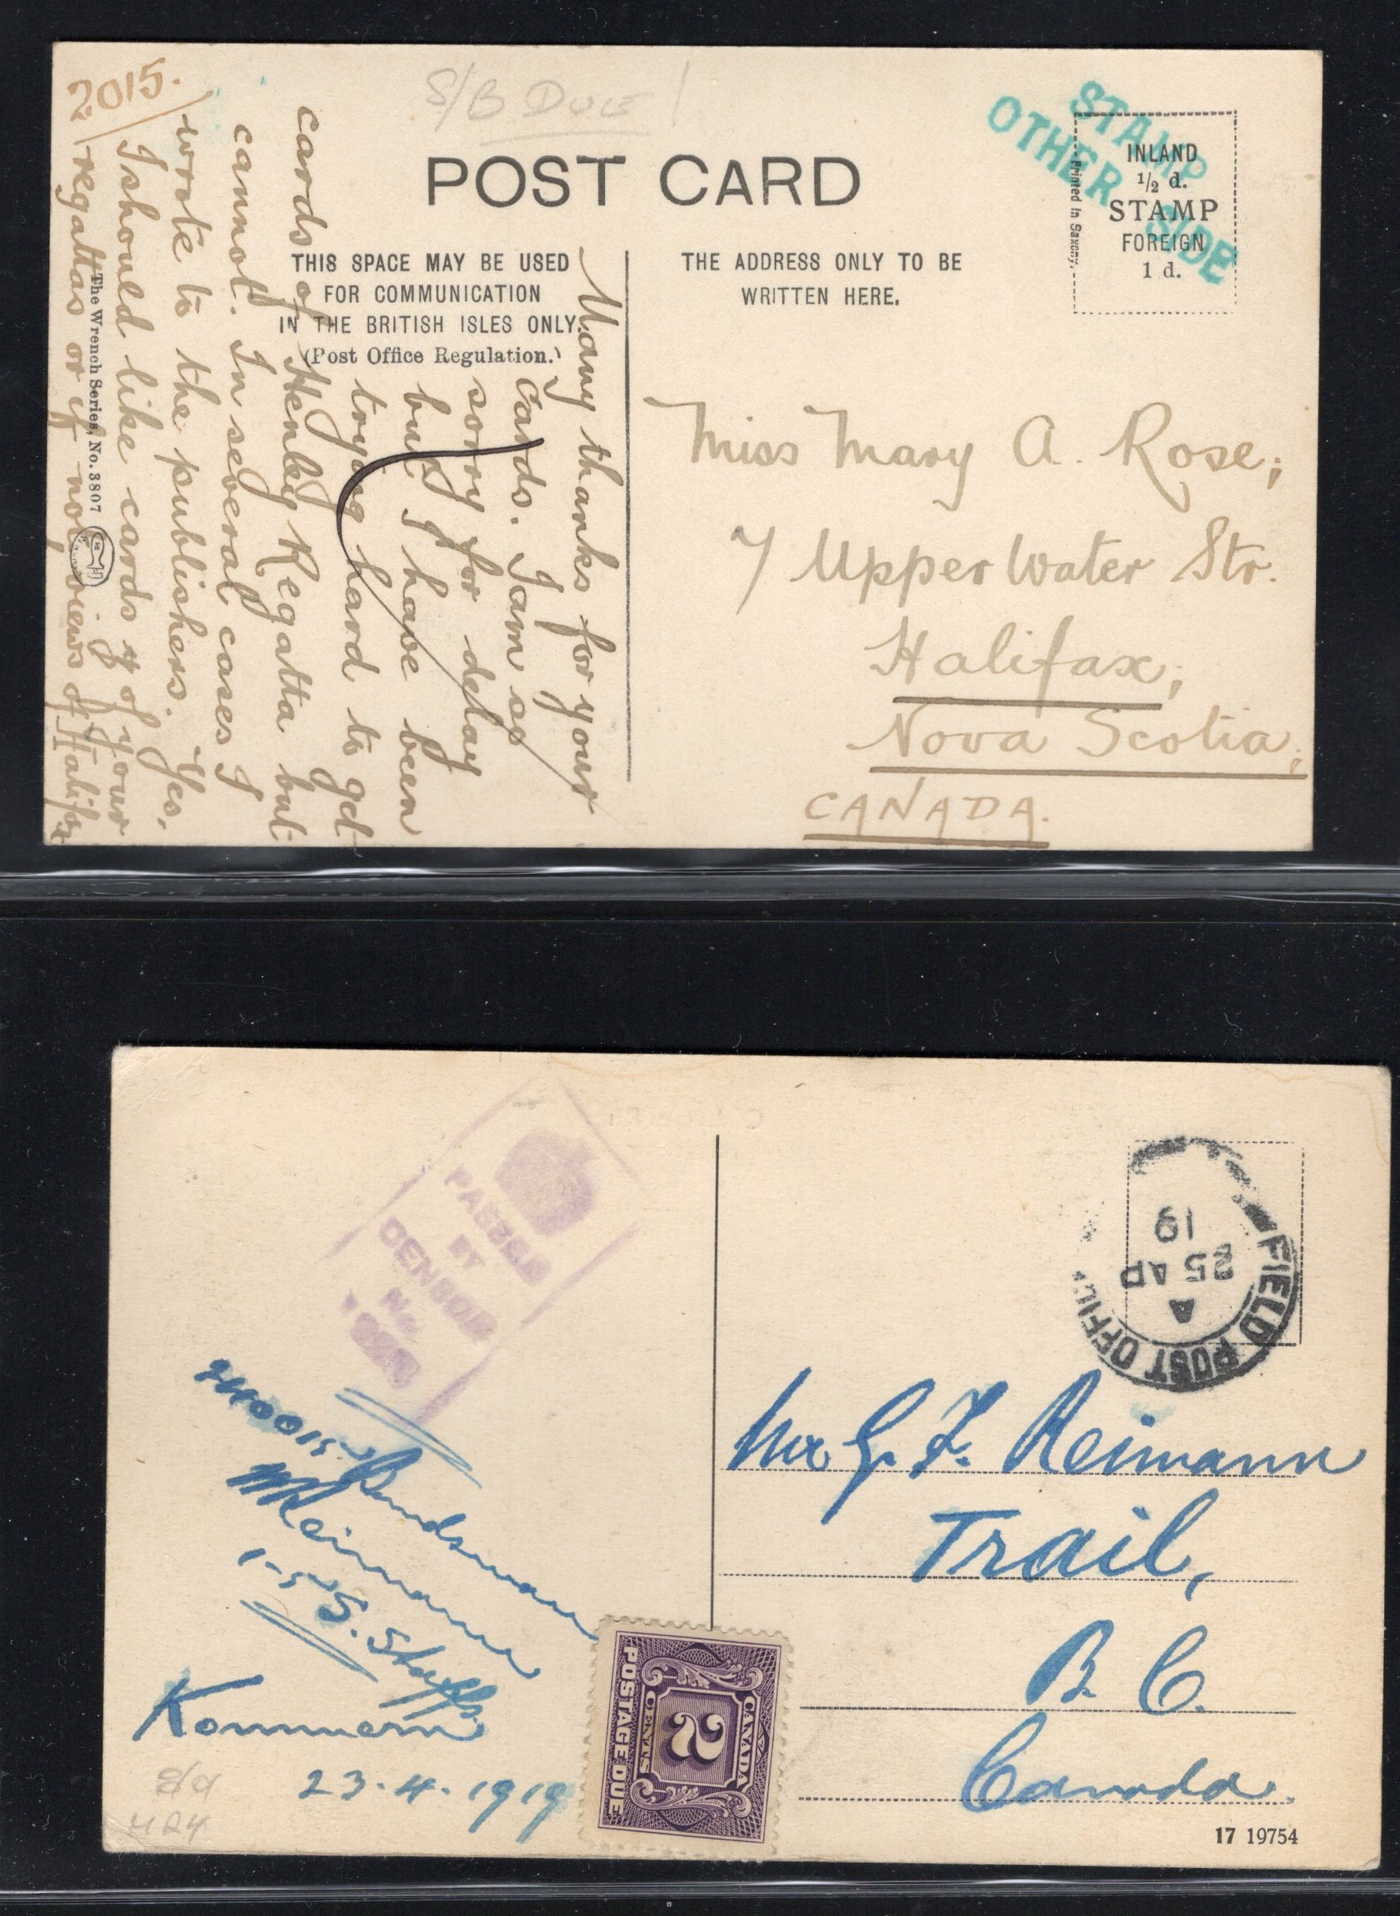 S/B DUE
POST CARD
STAMP
OTHER SIDE
INLAND
1/2 d.
STAMP
FOREIGN
1 d.
Printed in Saxony.
THIS SPACE MAY BE USED
FOR COMMUNICATION
IN THE BRITISH ISLES ONLY.
(Post Office Regulation.)
THE ADDRESS ONLY TO BE
WRITTEN HERE.
2015.
Many thanks for your
cards. I am so
sorry for delay
but I have been
trying hard to get
cards of Henley Regatta but
cannot. In several cases I
wrote to the publishers. Yes,
I should like cards of your
regattas or if not views of Halifax
The Wrench Series, No. 3807
Miss Mary A. Rose,
7 Upper Water Str.
Halifax,
Nova Scotia,
CANADA.
PASSED
BY
CENSOR
No.
FIELD POST OFFICE
A
25 AP
19
Bandsman
Reimann
1-5 S. Staffs
Kommern
23.4.1919
Mr G. F. Reimann
Trail,
B. C.
Canada.
CANADA
2
CENTS
POSTAGE DUE
17 19754